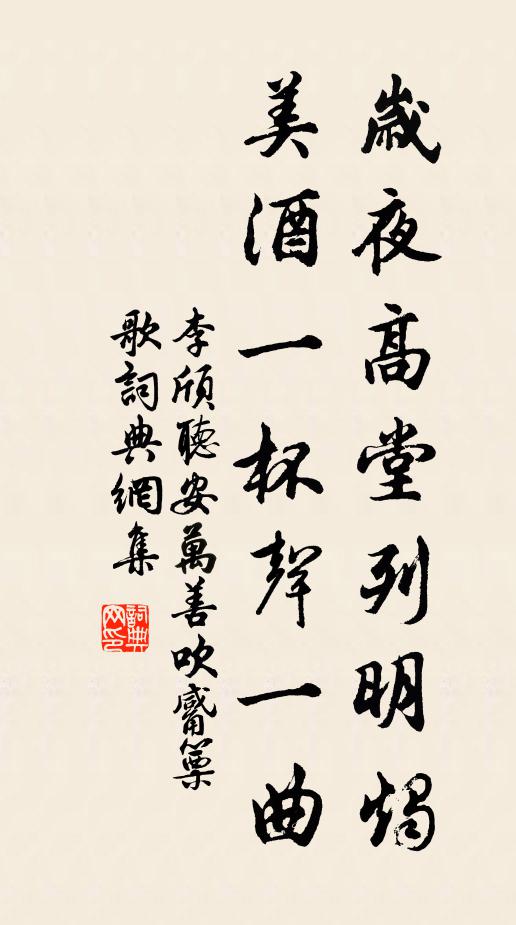 歲夜高堂列明燭
美酒一杯聲一曲
李頎聽安萬善吹觱篥
歌詞典網集
詞典
网印